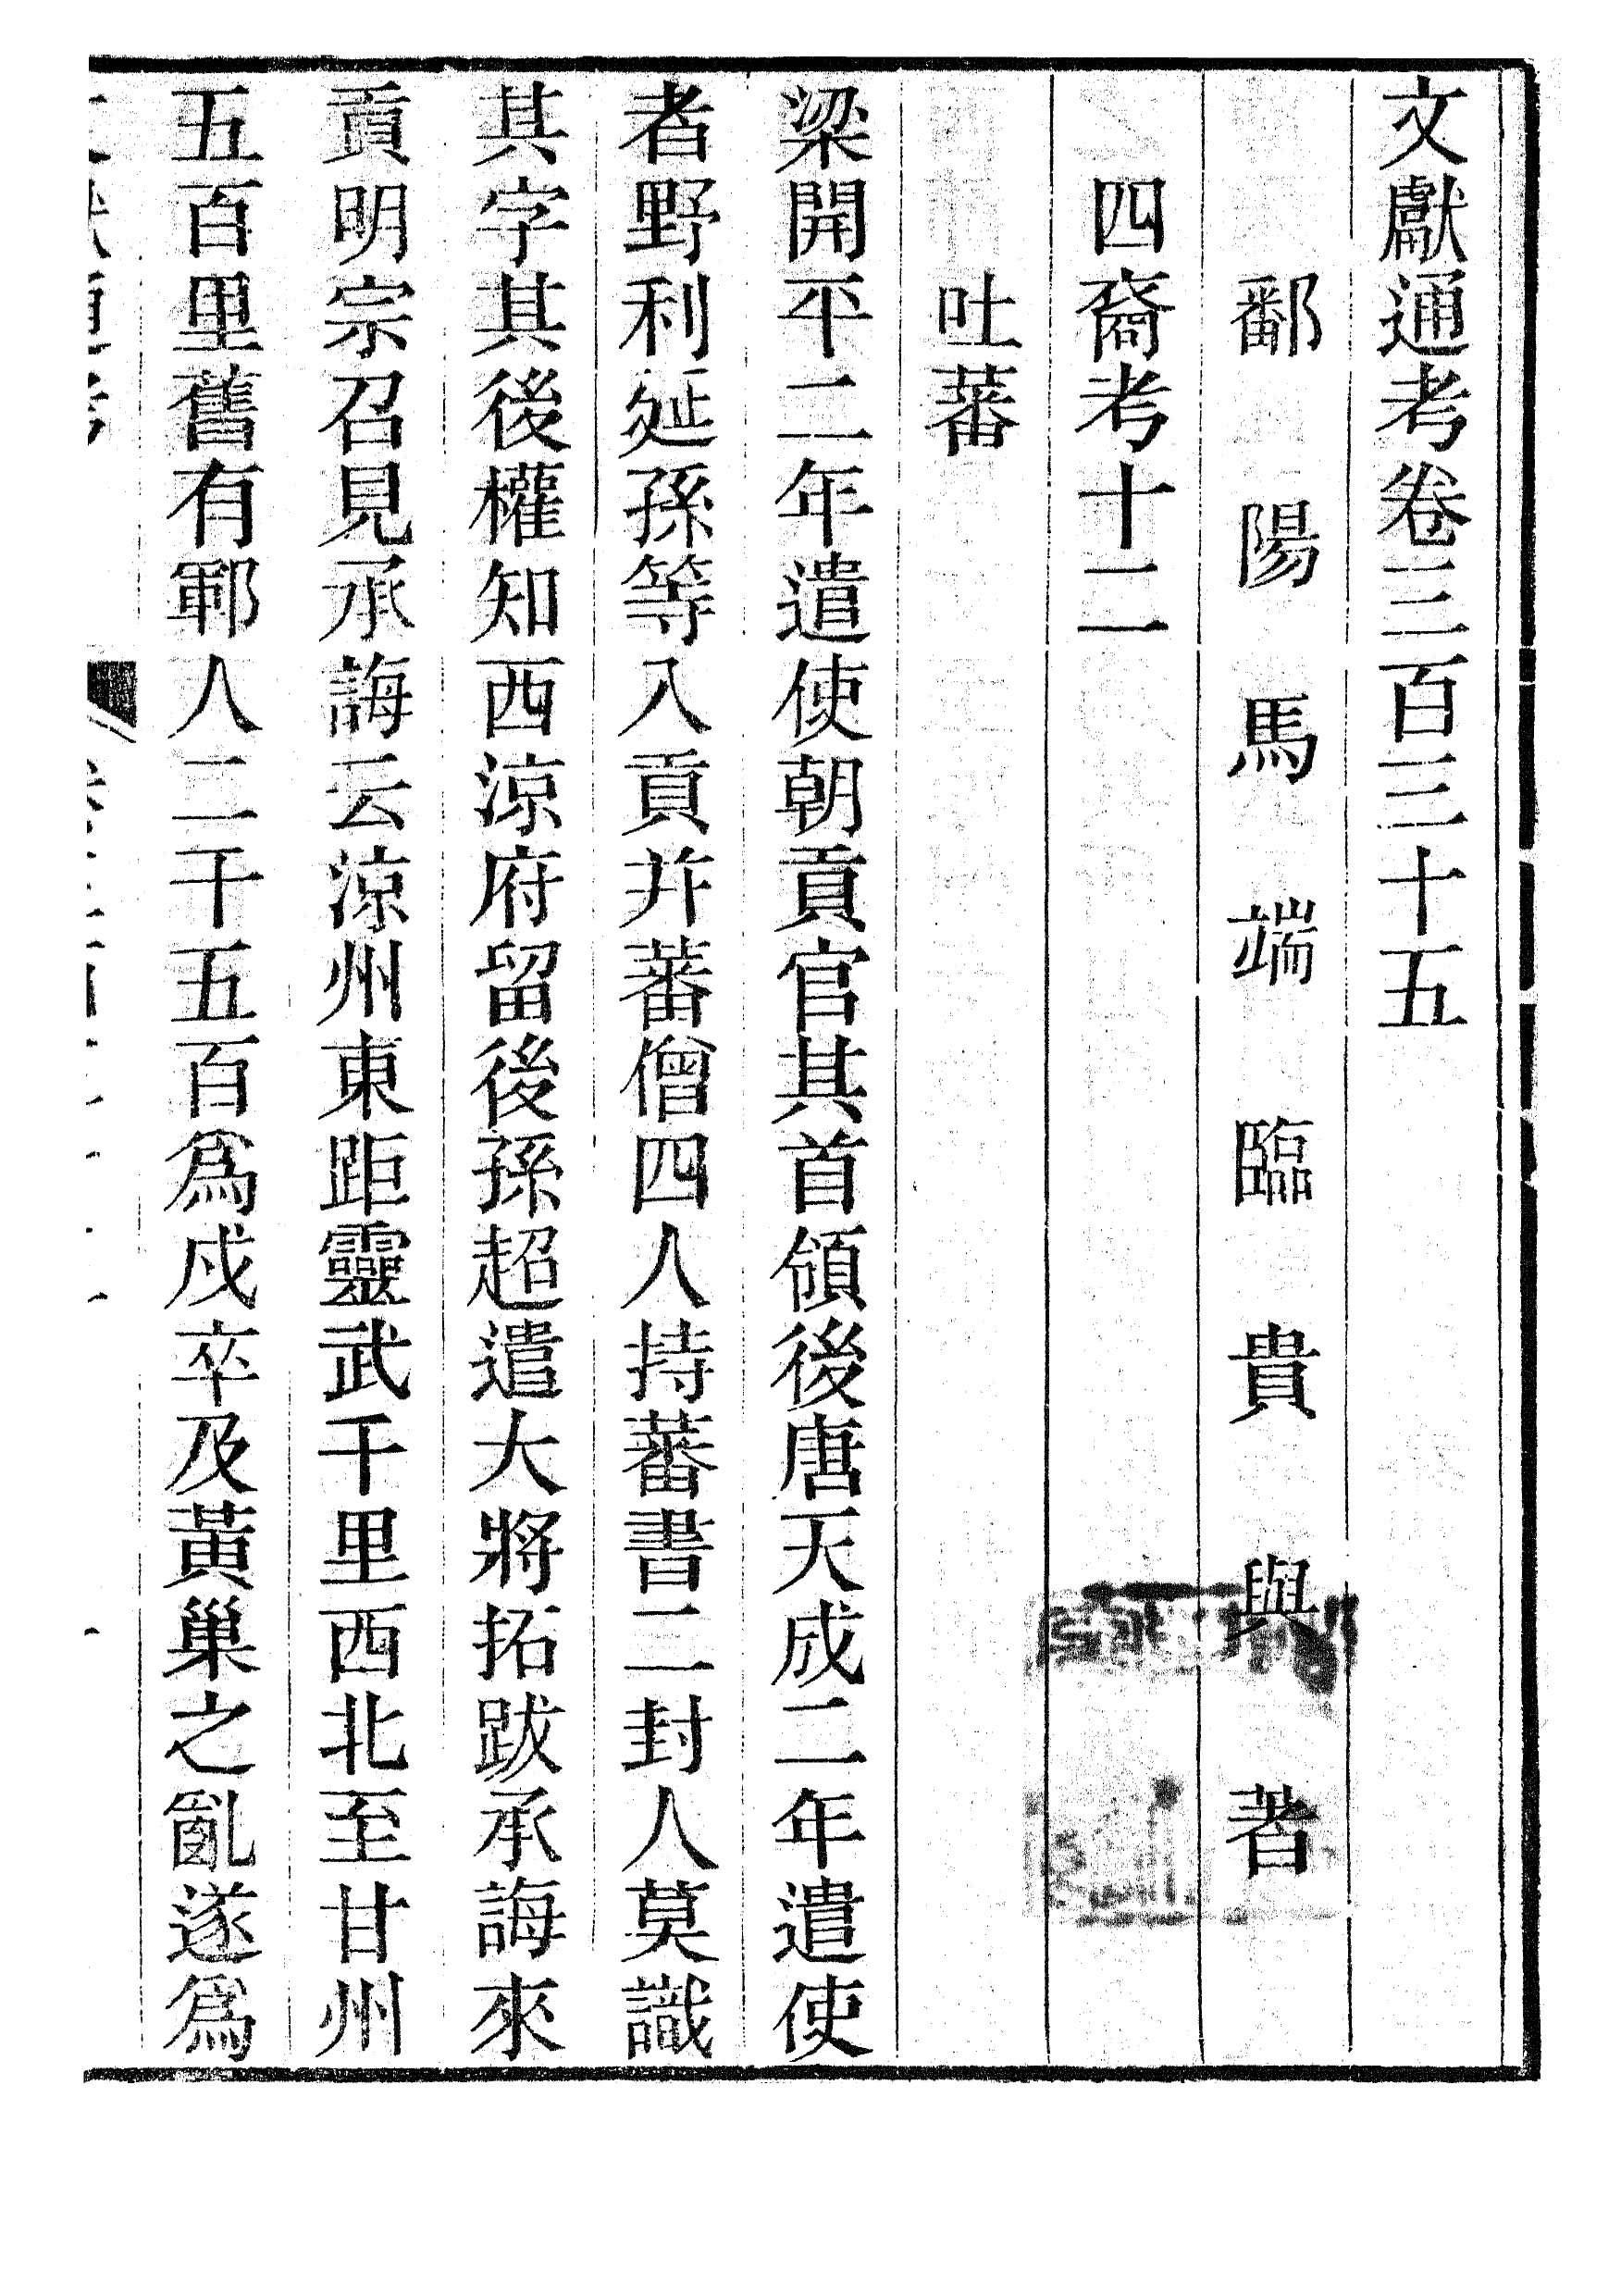 文獻通考卷三百三十五
鄱陽馬端臨貴與著
四裔考十二
吐蕃
梁開平二年遣使朝貢官其首領後唐天成二年遣使
者野利延孫等入貢幷蕃僧四人持蕃書二封人莫識
其字其後權知西涼府留後孫超遣大將拓跋承誨來
貢明宗召見承誨云涼州東距靈武千里西北至甘州
五百里舊有鄆人二千五百爲戍卒及黃巢之亂遂爲